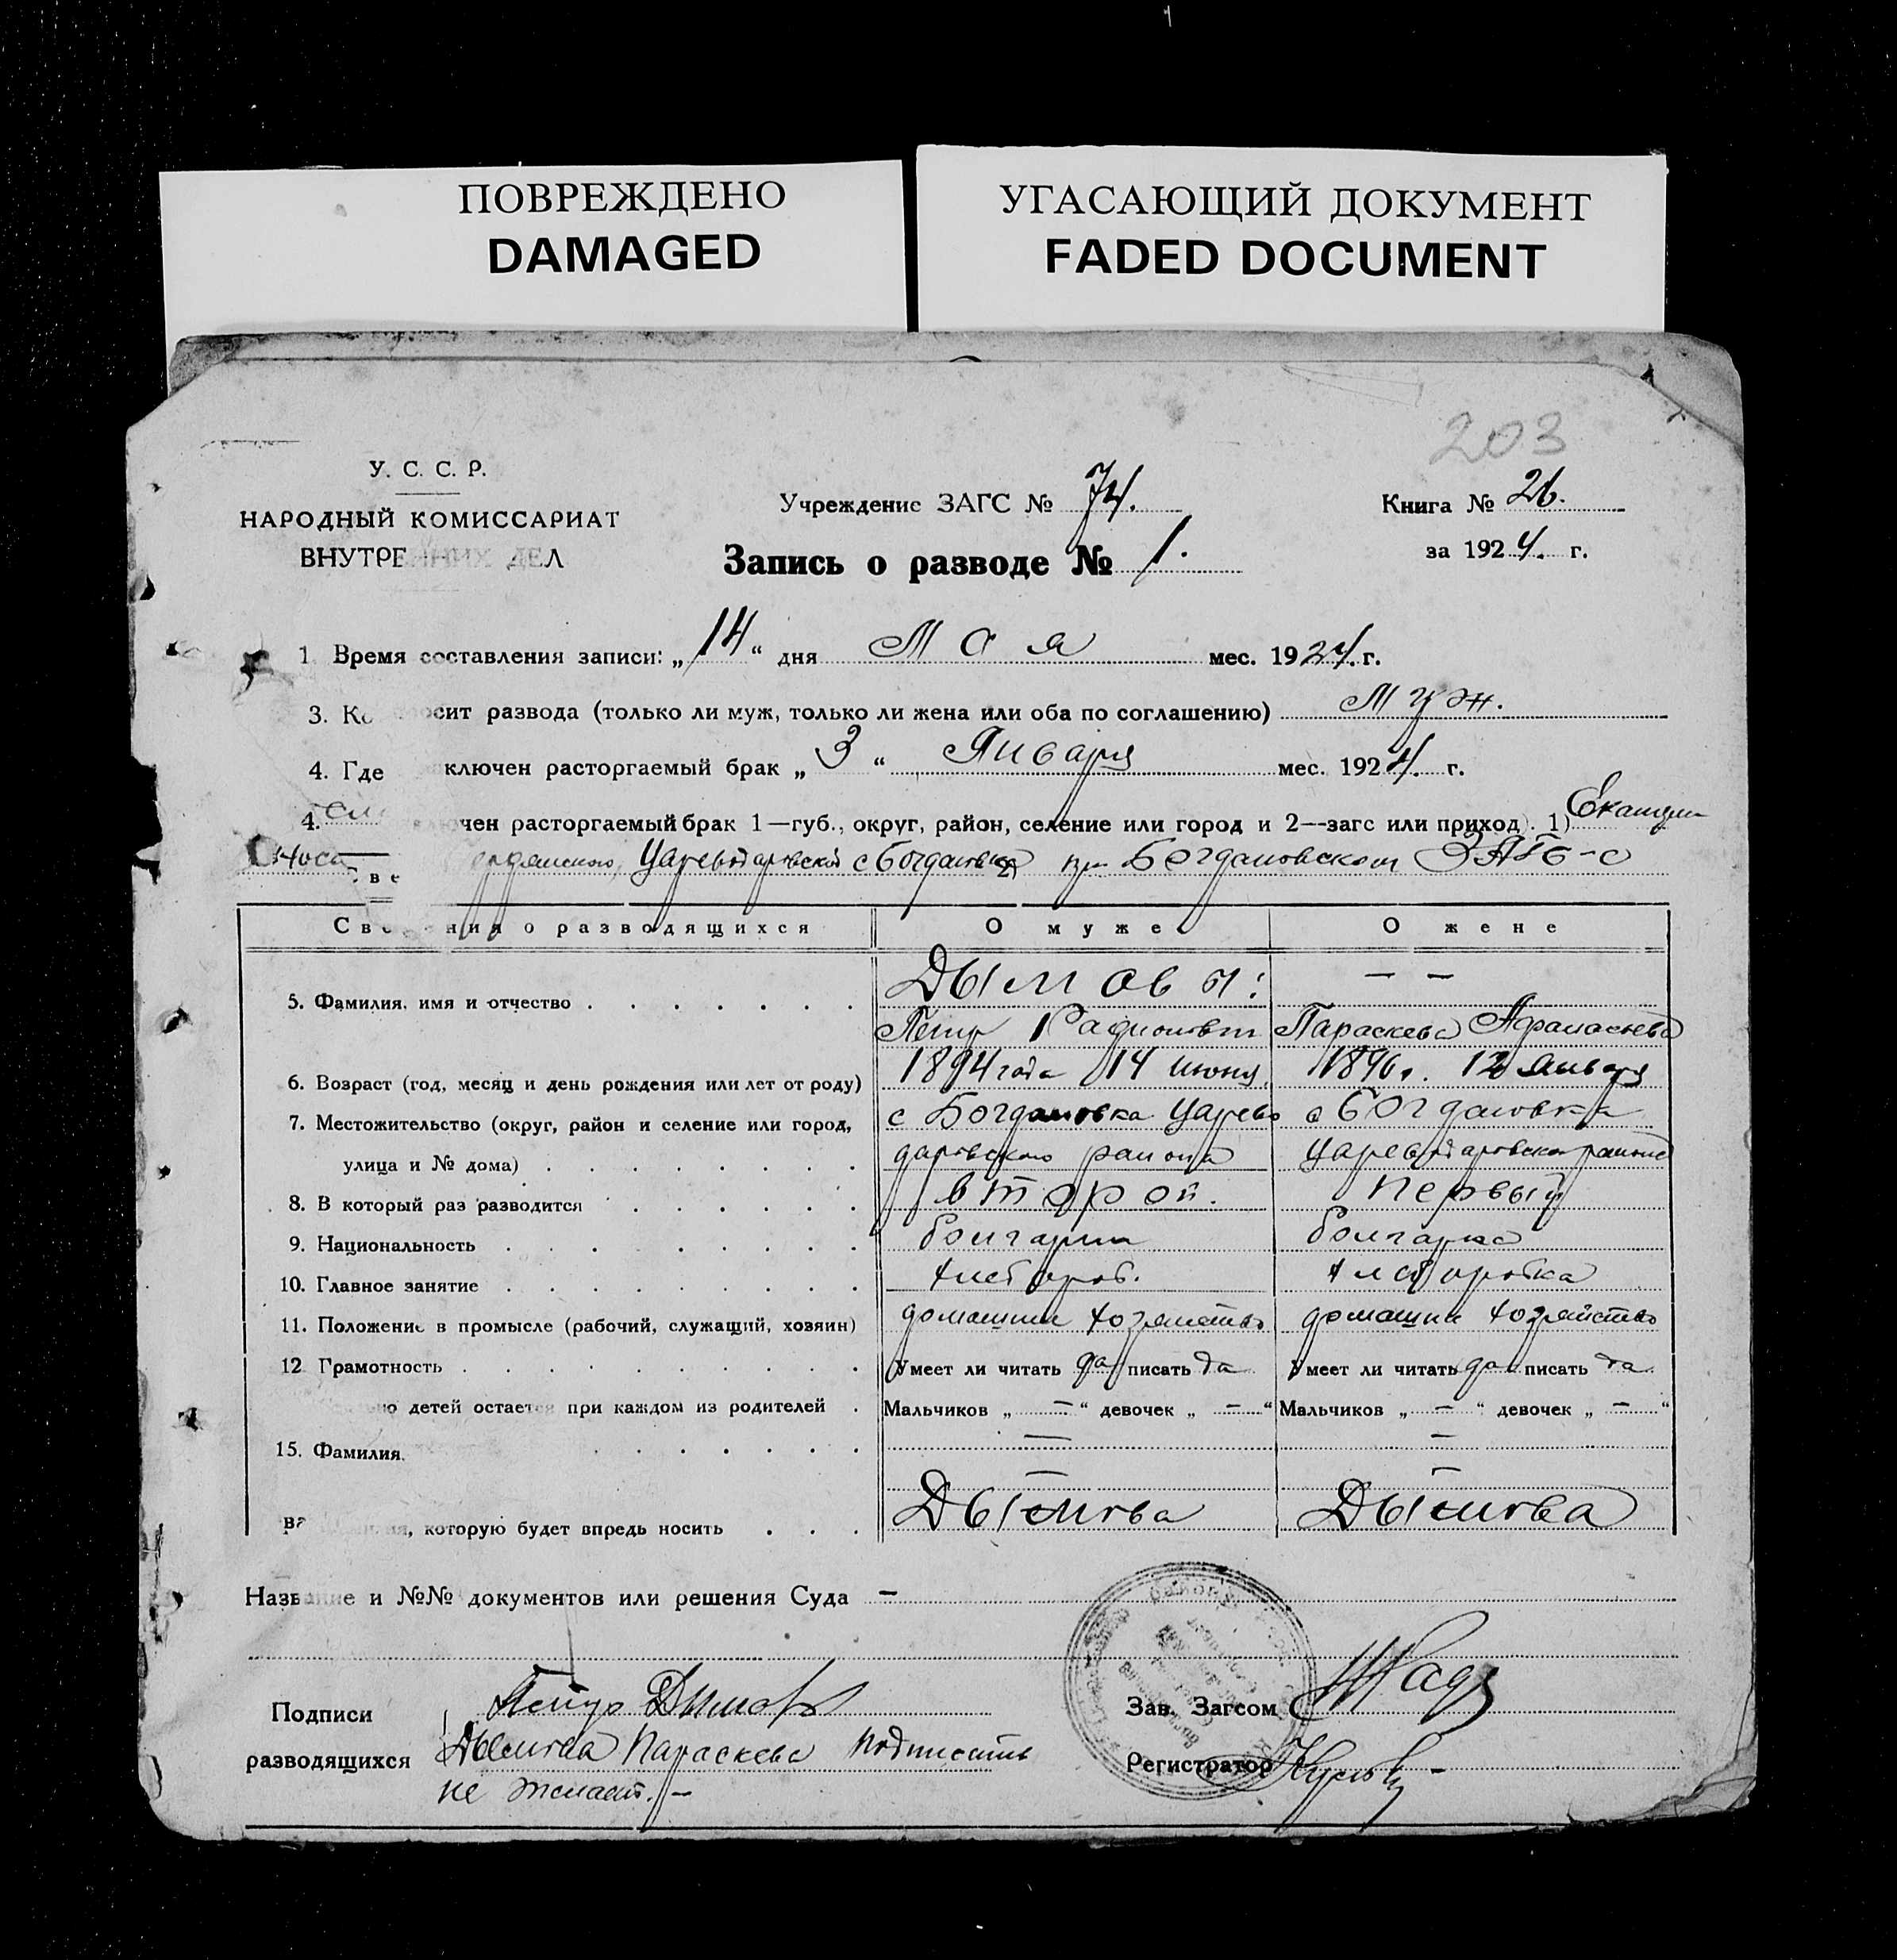 ПОВРЕЖДЕНО
DAMAGED
УГАСАЮЩИЙ ДОКУМЕНТ
FADED DOCUMENT
203
У. С. С. Р.
НАРОДНЫЙ КОМИССАРИАТ
ВНУТРЕННИХ ДЕЛ
Учреждение ЗАГС № 74.
Запись о разводе № 1.
Книга № 26.
за 1924. г.
1. Время составления записи: „14“ дня Мая мес. 1924. г.
3. Ко осит развода (только ли муж, только ли жена или оба по соглашению) Муж.
4. Где ключен расторгаемый брак „3“ Января мес. 1924. г.
4. чен расторгаемый брак 1—губ., округ, район, селение или город и 2—загс или приход). 1) Екатери
Цареводаровской с Богдановка 2) при Богдановском ЗАГС-е
Сведения о разводящихся О муже О жене
5. Фамилия, имя и отчество Дымовы: — —
Петр Радионович Параскева Афанасьева
6. Возраст (год, месяц и день рождения или лет от роду) 1894 года 14 июня 1896 г. 12 Января
7. Местожительство (округ, район и селение или город, с Богдановка Царево с Богдановка
улица и № дома) даровского района Цареводаровского района
8. В который раз разводится второй. первый
9. Национальность болгарин болгарка
10. Главное занятие хлебороб. хлеборобка
11. Положение в промысле (рабочий, служащий, хозяин) домашнее хозяйство домашнее хозяйство
12. Грамотность Умеет ли читать да писать да Умеет ли читать да писать да
но детей остается при каждом из родителей Мальчиков „—“ девочек „—“ Мальчиков „—“ девочек „—“
15. Фамилия. — —
— —
которую будет впредь носить Дымова Дымова
Название и №№ документов или решения Суда —
Подписи Петр Дымов Зав. Загсом
разводящихся Дымова Параскева подписать Регистратор
не желает. —